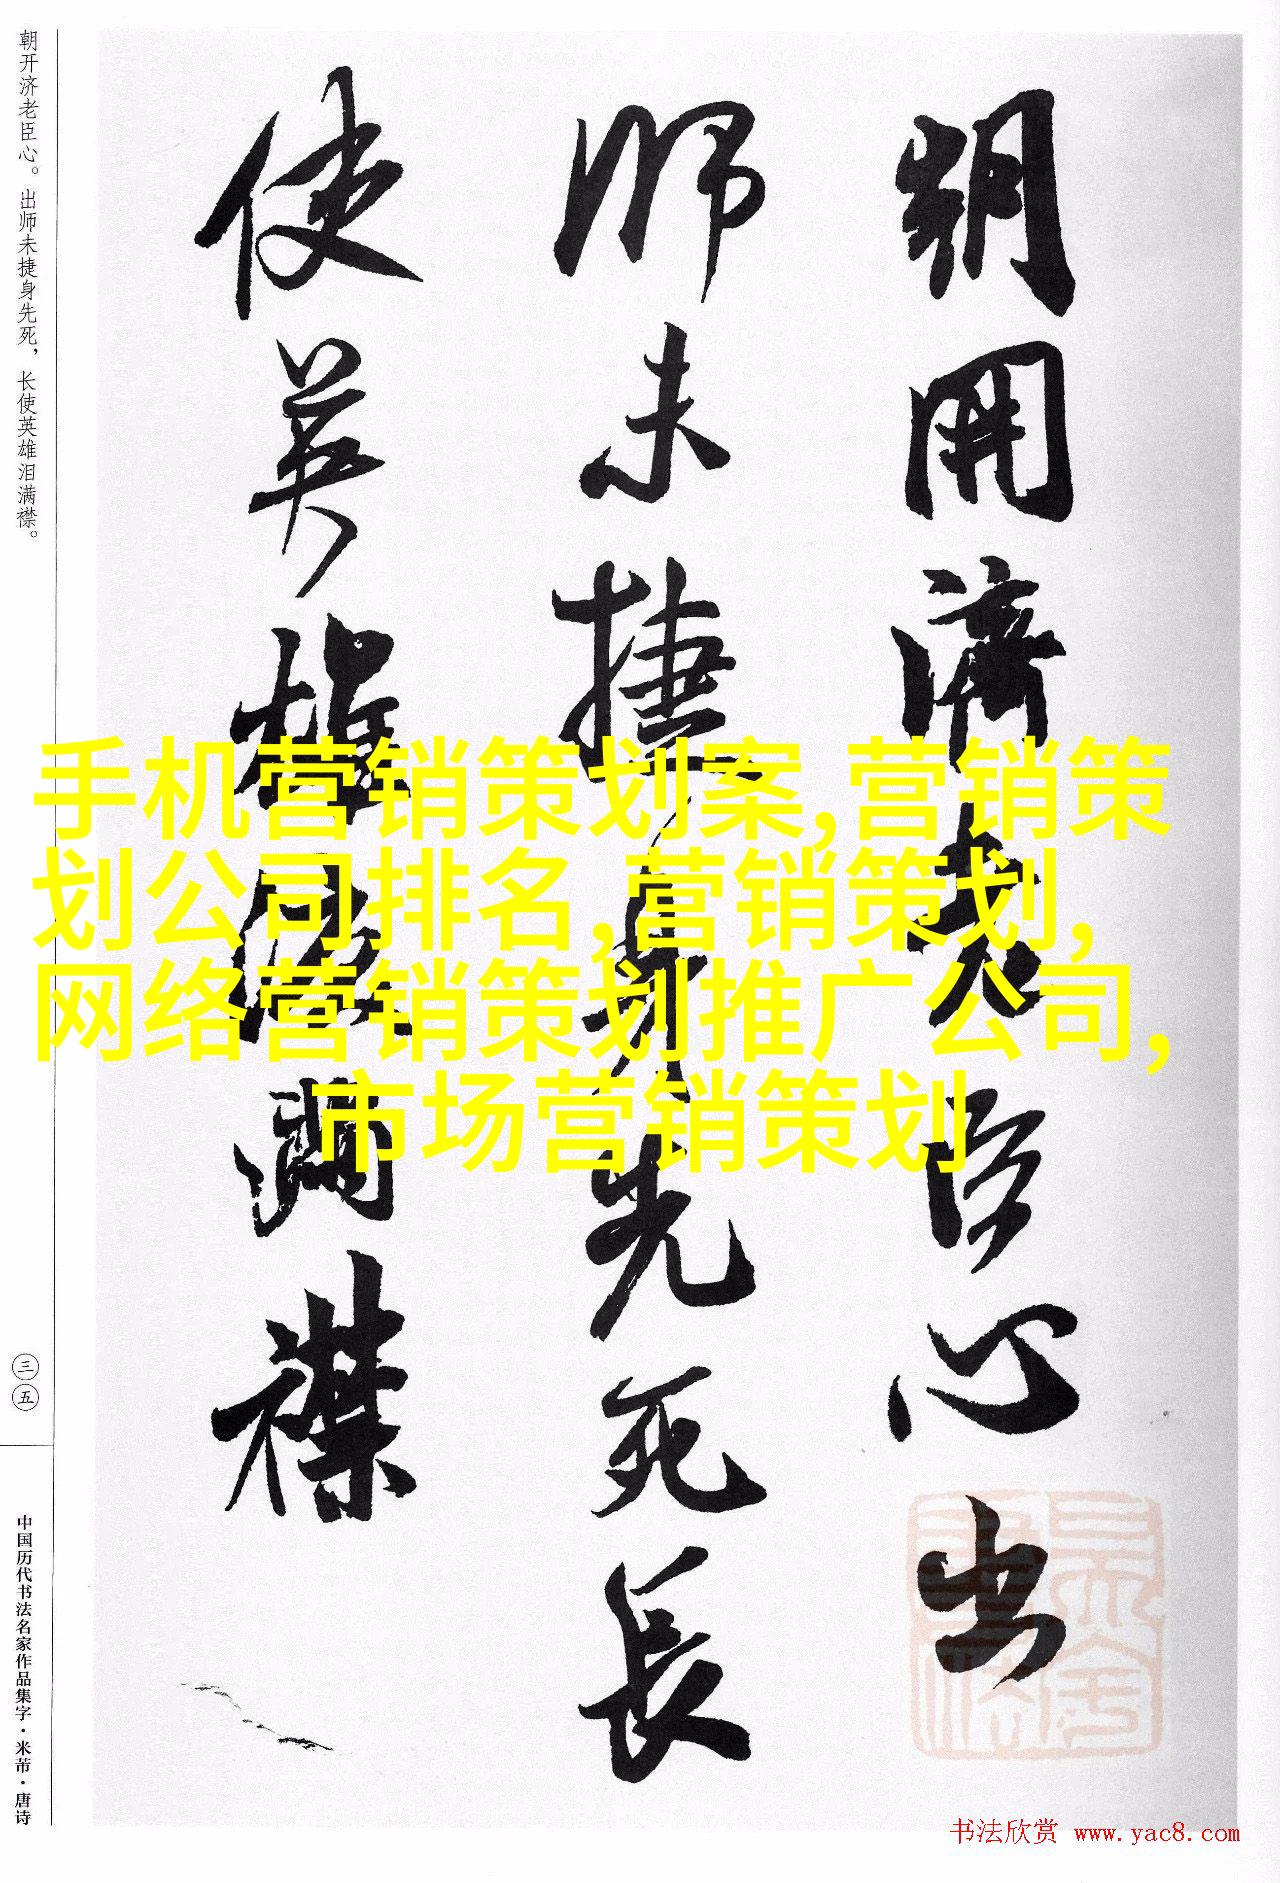 朝開濟老臣心出
師未捷身先死長
使英雄淚滿襟
朝开济老臣心。出师未捷身先死，长使英雄泪满襟。
三五
中国历代书法名家作品集字·米芾·唐诗
手机营销策划案,营销策
划公司排名,营销策划,
网络营销策划推广公司,
市场营销策划
书法欣赏 www.yac8.com